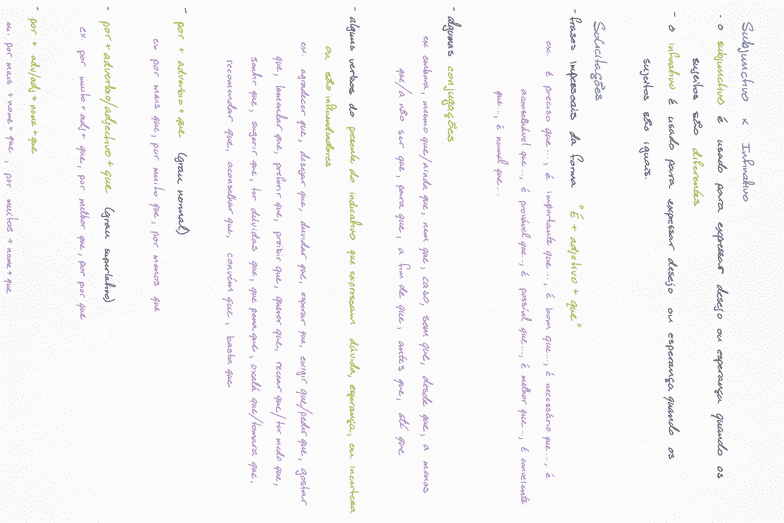 Subjunctivo x Infinitivo
- o subjunctivo é usado para expressar desejo ou esperança quando os
sujeitos são diferentes
- o infinitivo é usado para expressar desejo ou esperança quando os
sujeitos são iguais.
Solicitações
- frases impessoais da forma "É + adjetivo + que"
ex. é preciso que..., é importante que..., é bom que..., é necessário que..., é
aconselhável que..., é provável que..., é possível que..., é melhor que..., é conveniente
que..., é normal que...
- algumas conjugações
ex embora, mesmo que/ainda que, nem que, caso, sem que, desde que, a menos
que/a não ser que, para que, a fim de que, antes que, até que
- alguns verbos do presente do indicativo que expressam dúvida, esperança, ou incerteza
ou são influenciadores
ex agradecer que, desejar que, duvidar que, esperar que, exigir que/pedir que, gostar
que, lamentar que, preferir que, proibir que, querer que, recear que/ter medo que,
sentir que, sugerir que, ter dúvidas que, que pena que, oxalá que/tomara que,
recomendar que, aconselhar que, convém que, basta que
- por + advérbio + que (grau normal)
ex por mais que, por muito que, por menos que
- por + advérbio/adjectivo + que (grau superlativo)
ex. por muito + adj + que, por melhor que, por pior que
- por + adv/adj + nome + que
ex. por mais + nome + que, por muitos + nome + que